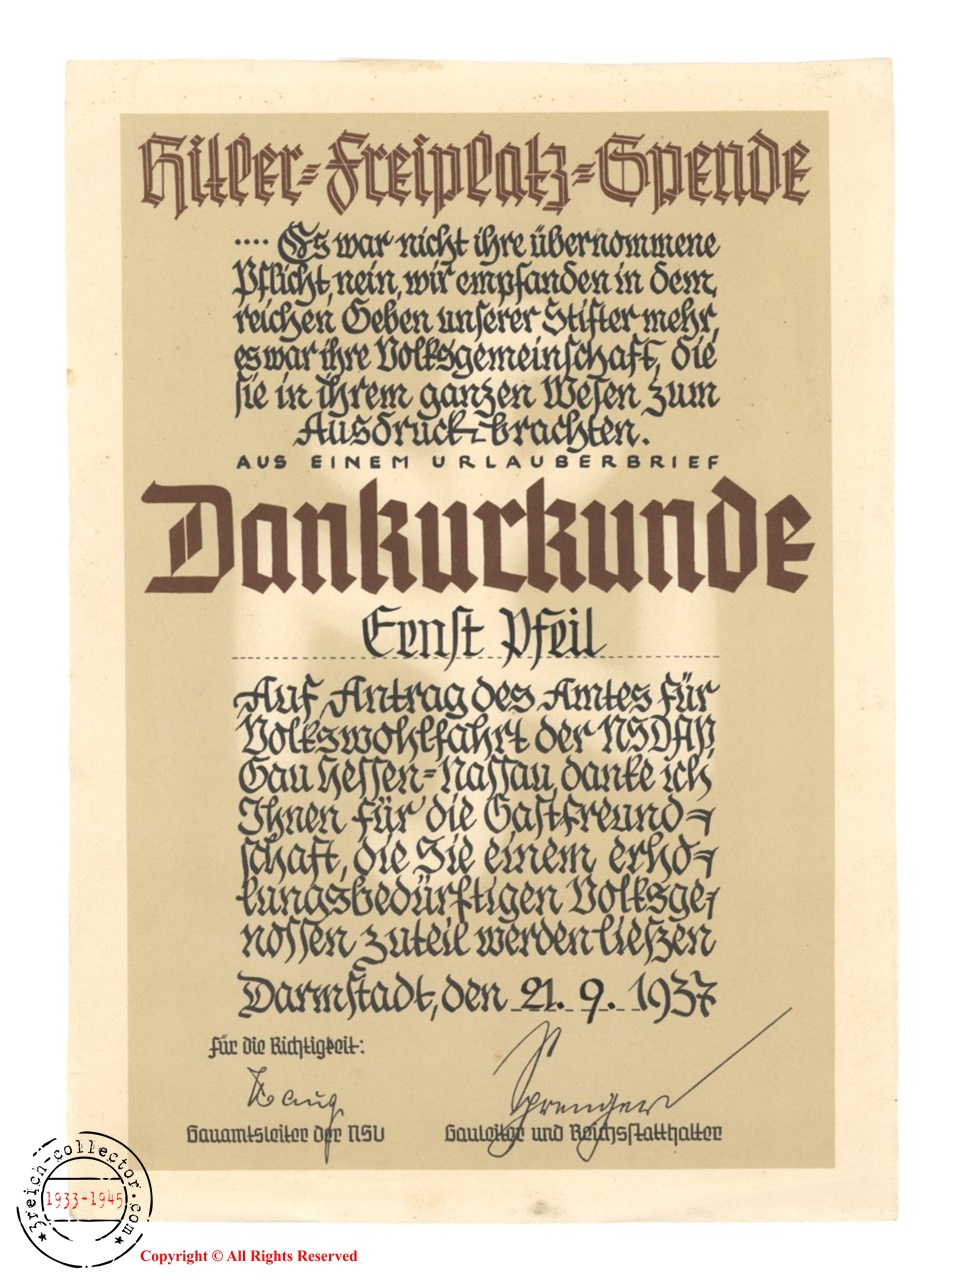 Hitler=Freiplatz=Spende
.... Es war nicht ihre übernommene
Pflicht, nein, wir empfanden in dem
reichen Geben unserer Stifter mehr,
es war ihre Volksgemeinschaft, die
sie in ihrem ganzen Wesen zum
Ausdruck brachten.
AUS EINEM URLAUBERBRIEF
Dankurkunde
Ernst Pfeil
Auf Antrag des Amtes für
Volkswohlfahrt der NSDAP,
Gau Hessen=Nassau, danke ich
Ihnen für die Gastfreund=
schaft, die Sie einem erho=
lungsbedürftigen Volksge=
nossen zuteil werden ließen
Darmstadt, den 21. 9. 1937
Für die Richtigkeit:
Haug
Sprenger
Gauamtsleiter der NSV
Gauleiter und Reichsstatthalter
3reich-collector.com
1933-1945
Copyright © All Rights Reserved